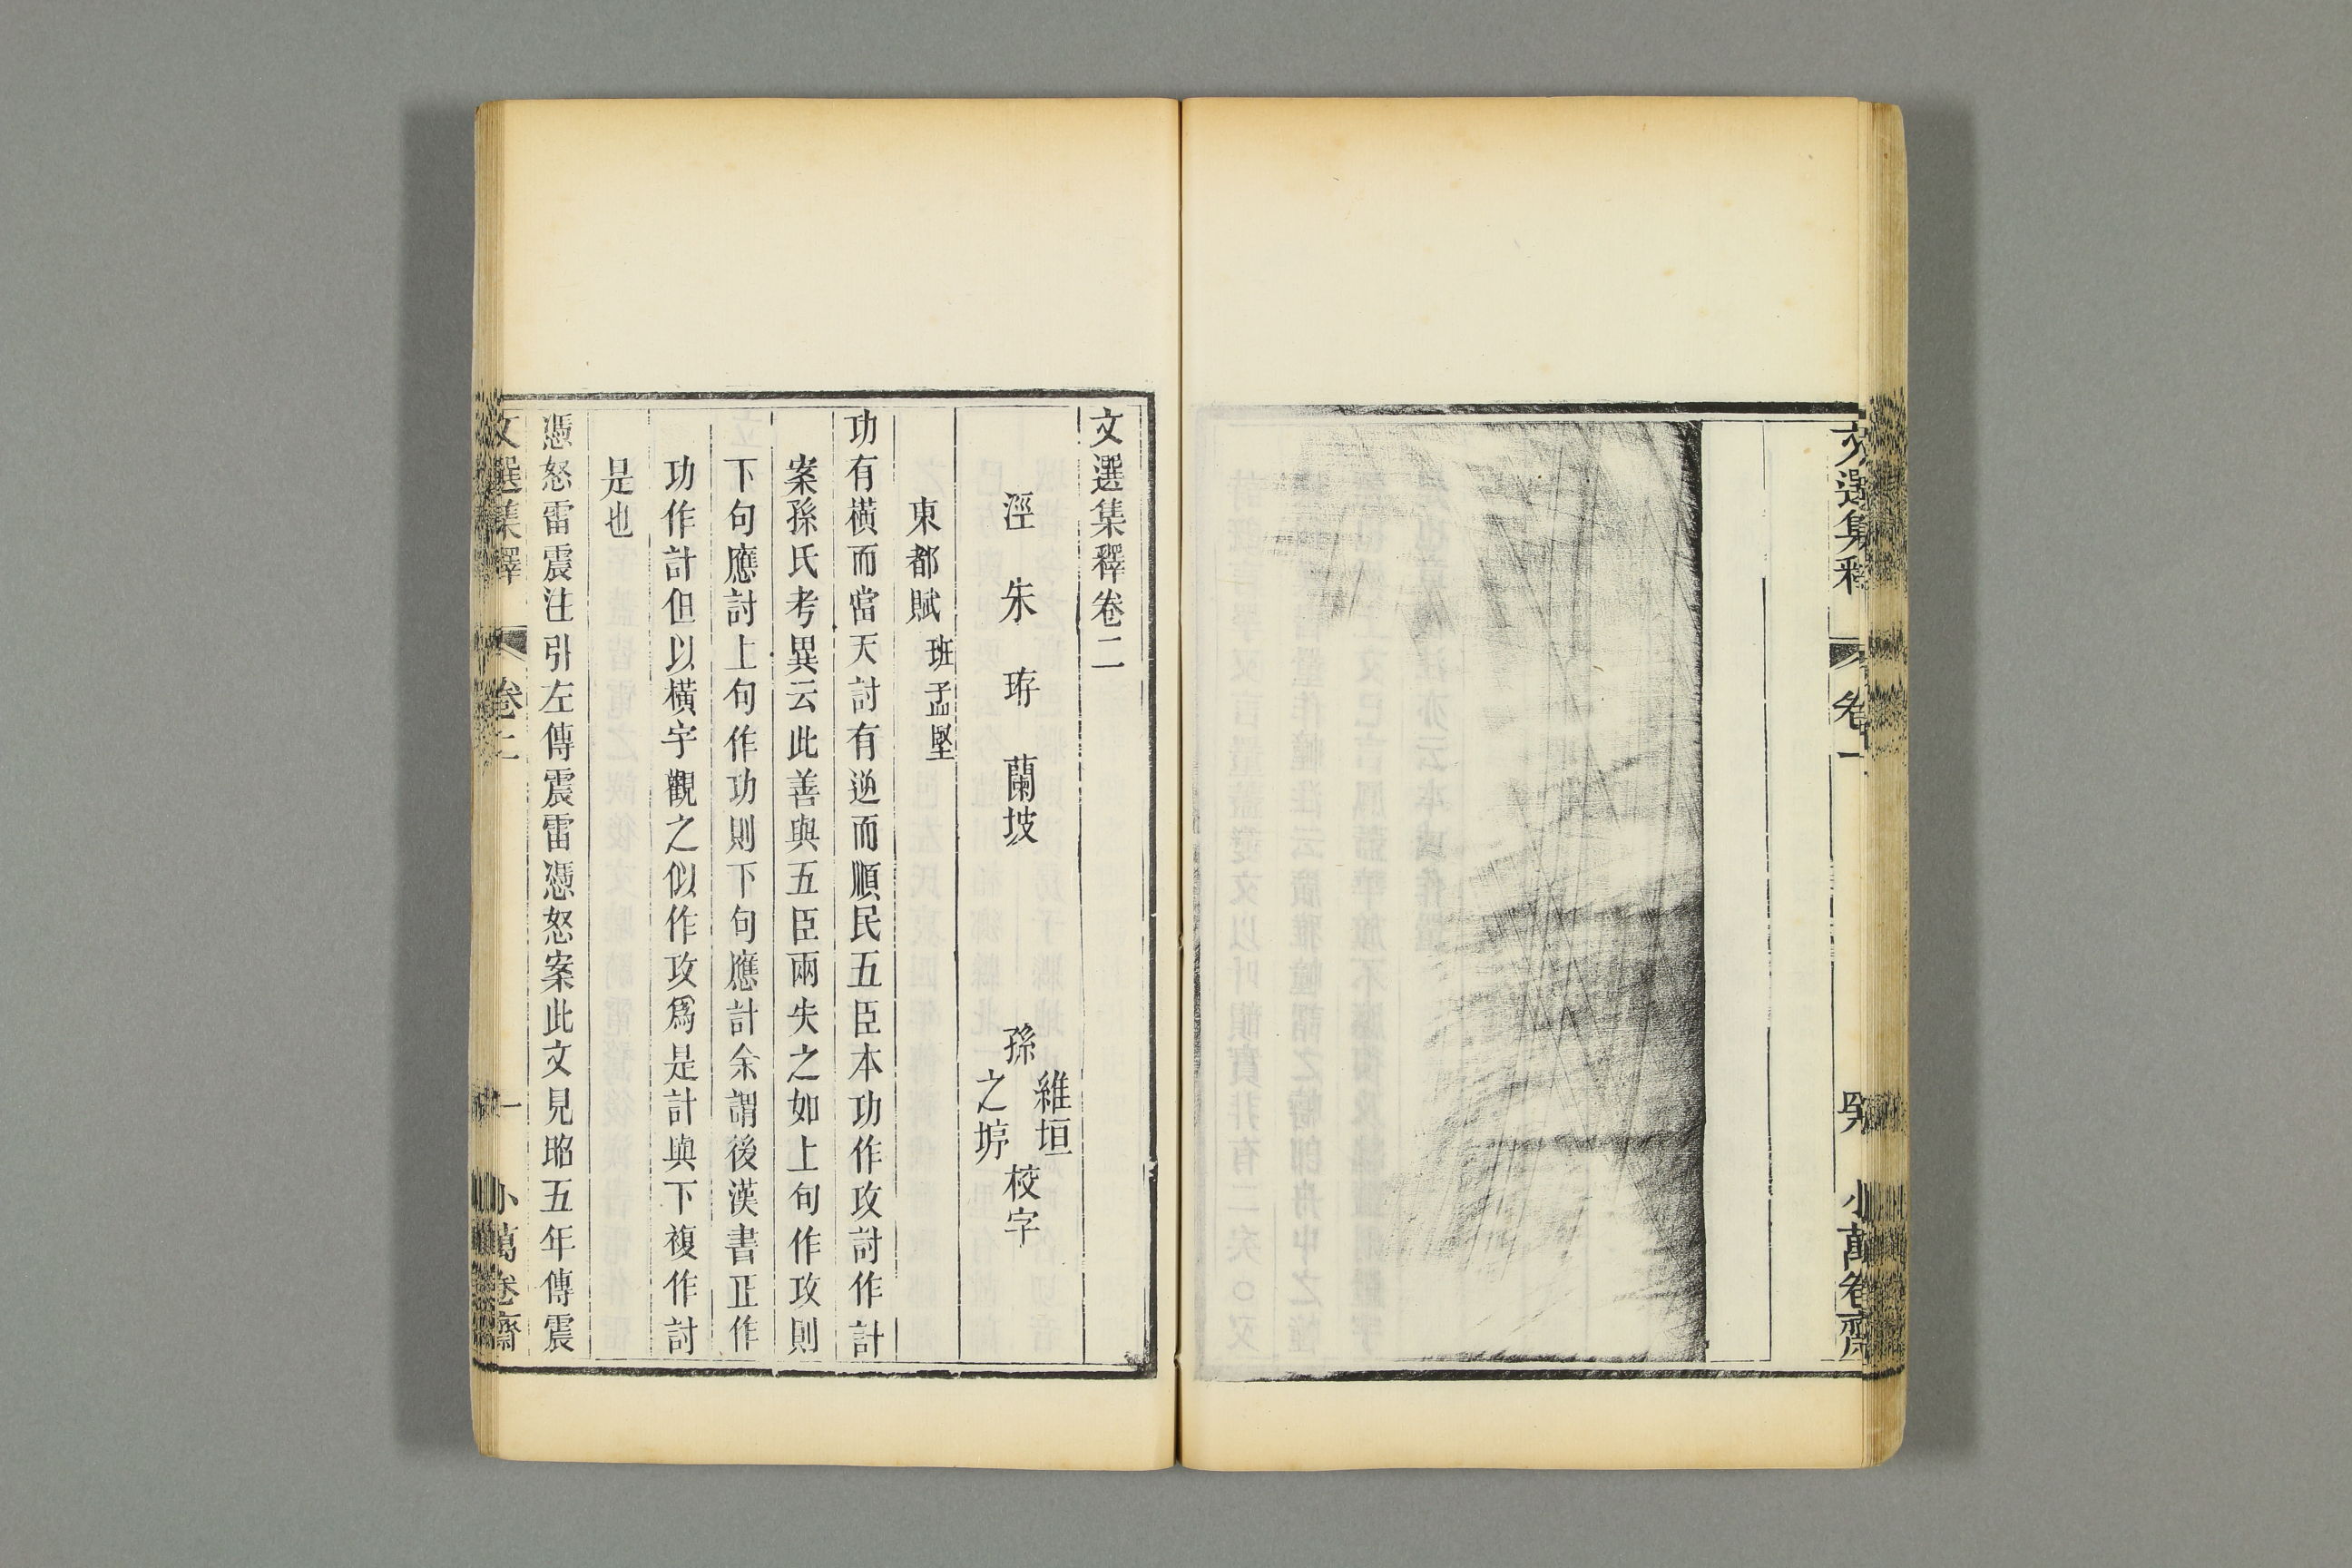 文選集釋
卷一
小萬卷齋
文選集釋卷二
涇 朱 珔 蘭坡
孫 維垣 之垿 校字
東都賦 班孟堅
功有橫而當天討有逆而順民五臣本功作攻討作計
案孫氏考異云此善與五臣兩失之如上句作攻則
下句應討上句作功則下句應計余謂後漢書正作
功作計但以橫字觀之似作攻爲是計與下複作討
是也
憑怒雷震注引左傳震雷憑怒案此文見昭五年傳震
文選集釋
卷二
一
小萬卷齋